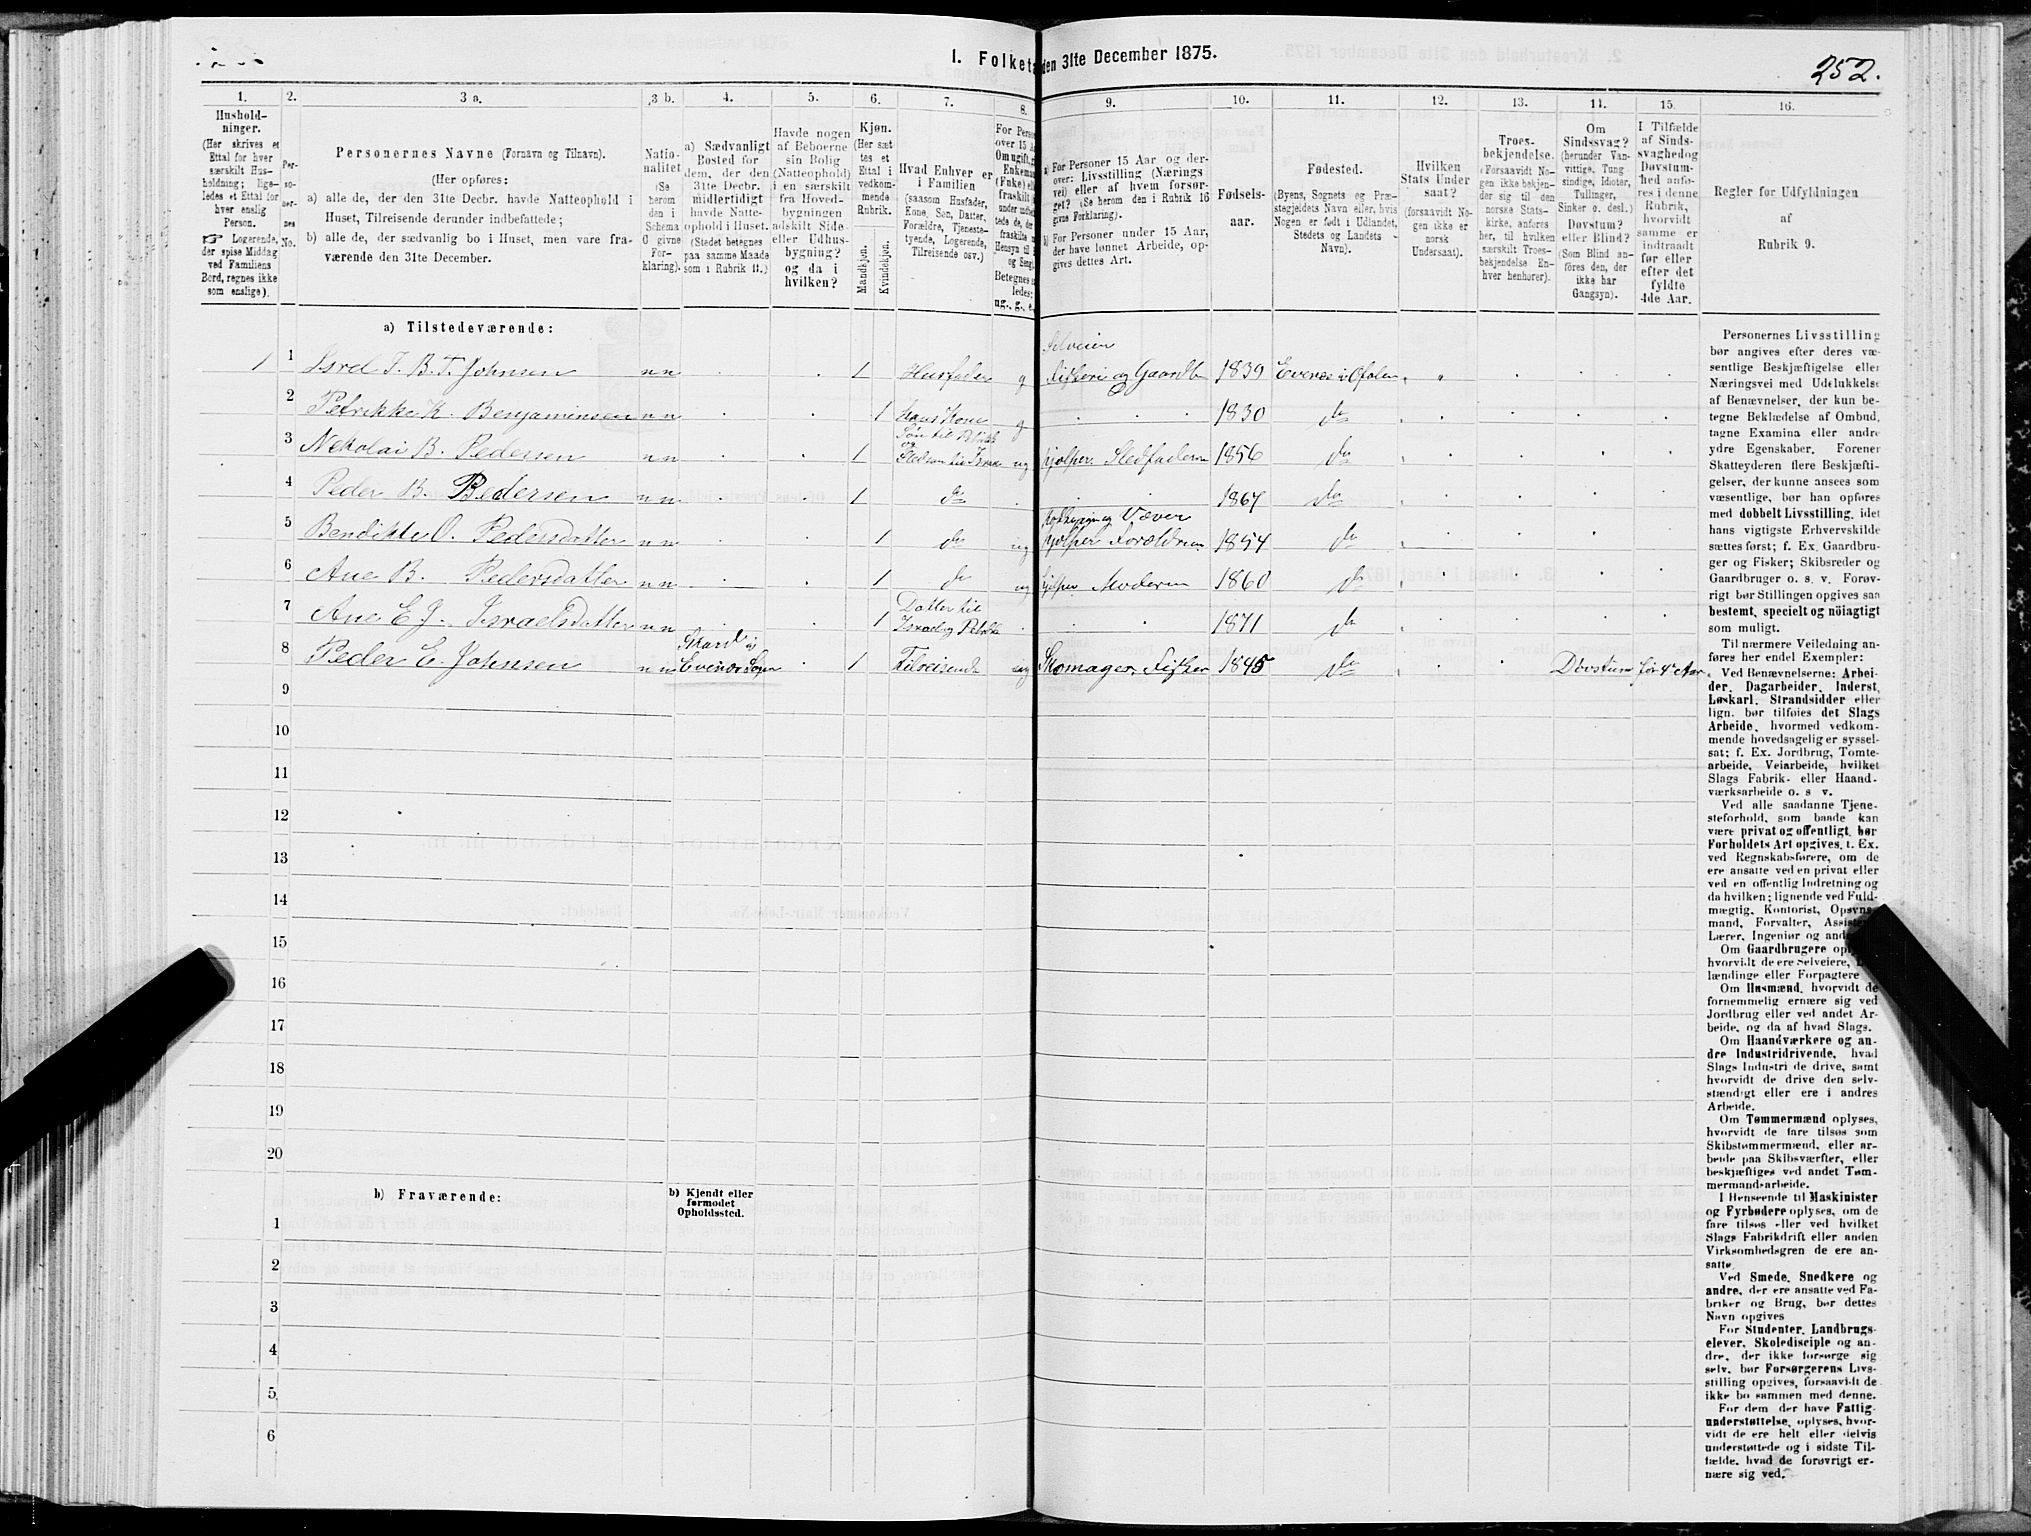 I. Folketa
den 31te December 1875.
252.
1.
2.
3 a.
3 b.
4.
5.
6.
7.
8.
9.
10.
11.
12.
13.
14.
15.
16.
Hushold-
ninger.
(Her skrives et
Ettal for hver
særskilt Hus-
holdning; lige-
ledes et Ettal for
hver enslig
Person.
☞ Logerende,
der spise Middag
ved Familiens
Bord, regnes ikke
som enslige).
Per-
so-
ner-
nes
No.
Personernes Navne (Fornavn og Tilnavn).
(Her opføres:
a) alle de, der den 31te Decbr. havde Natteophold i
Huset, Tilreisende derunder indbefattede;
b) alle de, der sædvanlig bo i Huset, men vare fra-
værende den 31te December.
Natio-
nalitet
(Se
herom
den i
Schema
G givne
For-
klaring).
a) Sædvanligt
Bosted for
dem, der den
31te Decbr.
midlertidigt
havde Natte-
ophold i Huset.
(Stedet betegnes
paa samme Maade
som i Rubrik 11.)
Havde nogen
af Beboerne
sin Bolig
(Natteophold)
i en særskilt
fra Hoved-
bygningen
adskilt Side-
eller Udhus-
bygning?
og da i
hvilken?
Kjøn.
(Her sæt-
tes et
Ettal i
vedkom-
mende
Rubrik.
Mandkjøn.
Kvindekjøn.
Hvad Enhver er
i Familien
(saasom Husfader,
Kone, Søn, Datter,
Forældre, Tjeneste-
tyende, Logerende,
Tilreisende osv.)
For Perso
over 15 Aa
Om ugift, g
Enkeman
(Enke) ell
fraskilt
Betegnes s
ledes:
ug., g., e.
a) For Personer 15 Aar og der-
over: Livsstilling (Nærings
vei) eller af hvem forsør-
get? (Se herom den i Rubrik 16
givne Forklaring).
b) For Personer under 15 Aar,
der have lønnet Arbeide, op-
gives dettes Art.
Fødsels-
aar.
Fødested.
(Byens, Sognets og Præ-
stegjeldets Navn eller, hvis
Nogen er født i Udlandet,
Stedets og Landets
Navn).
Hvilken
Stats Under
saat?
(forsaavidt No-
gen ikke er
norsk
Undersaat).
Troes-
bekjendelse.
(Forsaavidt No-
gen ikke bekjen-
der sig til den
norske Stats-
kirke, anføres
her, til hvilken
særskilt Troes-
bekjendelse En-
hver henhører).
Om
Sindssvag?
(herunder Van-
vittige, Tung
sindige, Idioter,
Tullinger,
Sinker o. desl.)
Døvstum?
eller Blind?
(Som Blind an-
føres den, der
ikke har
Gangsyn).
I Tilfælde
af Sinds-
svaghed og
Døvstum-
hed anfø-
res i denne
Rubrik,
hvorvidt
samme er
indtraadt
før eller
efter det
fyldte
4de Aar.
Regler for Udfyldningen
af
Rubrik 9.
a) Tilstedeværende:
1 1 Isrel I. B. T. Johnsen n n 1 Husfader g Selveier Fiskeri og Gaardb 1839 Evenæs i Ofoten
2 Petrikke K. Benjaminsen n n 1 Hans Kone g 1830 do
3 Nekolai B. Pedersen n n 1 Søn til Petrikke og Stedsøn til Israel ug hjelper Stedfaderen 1856 do
4 Peder B. Pedersen n n 1 do 1867 do
5 Bendikte O. Pedersdatter n n 1 do ug Væver hjelper Forældrene 1854 do
6 Ane B. Pedersdatter n n 1 do ug hjelper Moderen 1860 do
7 Ane E. J. Israelsdatter n n 1 Datter til Israel og Petrikke 1871 do
8 Peder E. Johnsen n n Evenæs Sogn 1 Tilreisende ug Skomager, Fisker 1845 do Døvstum før 4de Aar
9
10
11
12
13
14
15
16
17
18
19
20
b) Fraværende:
b) Kjendt eller
formodet
Opholdssted.
1
2
3
4
5
6
Personernes Livsstilling
bør angives efter deres væ-
sentlige Beskjæftigelse eller
Næringsvei med Udelukkelse
af Benævnelser, der kun be-
tegne Beklædelse af Ombud,
tagne Examina eller andre
ydre Egenskaber. Forener
Skatteyderen flere Beskjæfti-
gelser, der kunne ansees som
væsentlige, bør han opføres
med dobbelt Livsstilling, idet
hans vigtigste Erhvervskilde
sættes først; f. Ex. Gaardbru-
ger og Fisker; Skibsreder og
Gaardbruger o. s. v. Forøv-
rigt bør Stillingen opgives saa
bestemt, specielt og nøiagtigt
som muligt.
Til nærmere Veiledning an-
føres her endel Exempler:
Ved Benævnelserne: Arbei-
der, Dagarbeider, Inderst,
Løskarl, Strandsidder eller
lign. bør tilføies det Slags
Arbeide, hvormed vedkom-
mende hovedsagelig er syssel-
sat; f. Ex. Jordbrug, Tomte-
arbeide, Veiarbeide, hvilket
Slags Fabrik- eller Haand-
værksarbeide o. s v.
Ved alle saadanne Tjene-
steforhold, som baade kan
være privat og offentligt, bør
Forholdets Art opgives, t. Ex.
ved Regnskabsførere, om de
ere ansatte ved en privat eller
ved en offentlig Indretning og
da hvilken; lignende ved Fuld-
mægtig, Kontorist, Opsyns-
mand, Forvalter, Assistent,
Lærer, Ingeniør og andre.
Om Gaardbrugere oplyses,
hvorvidt de ere Selveiere, Lei-
lændinge eller Forpagtere
Om Husmænd, hvorvidt de
fornemmelig ernære sig ved
Jordbrug eller ved andet Ar-
beide, og da af hvad Slags.
Om Haandværkere og an-
dre Industridrivende, hvad
Slags Industri de drive, samt
hvorvidt de drive den selv-
stændigt eller ere i andres
Arbeide.
Om Tømmermænd oplyses,
hvorvidt de fare tilsøs som
Skibstømmermænd, eller ar-
beide paa Skibsværfter, eller
beskjæftiges ved andet Tøm-
mermandsarbeide.
I Henseende til Maskinister
og Fyrbødere oplyses, om de
fare tilsøs eller ved hvilket
Slags Fabrikdrift eller anden
Virksomhedsgren de ere an-
satte.
Ved Smede, Snedkere og
andre, der ere ansatte ved Fa-
briker og Brug, bør dettes
Navn opgives
For Studenter, Landbrugs-
elever, Skoledisciple og an-
dre, der ikke forsørge sig
selv, bør Forsørgerens Livs-
stilling opgives, forsaavidt de
ikke bo sammen med denne.
For dem der have Fattig-
understøttelse, oplyses, hvor-
vidt de ere helt eller delvis
understøttede og i sidste Til-
fælde, hvad de forøvrigt er-
nære sig ved.